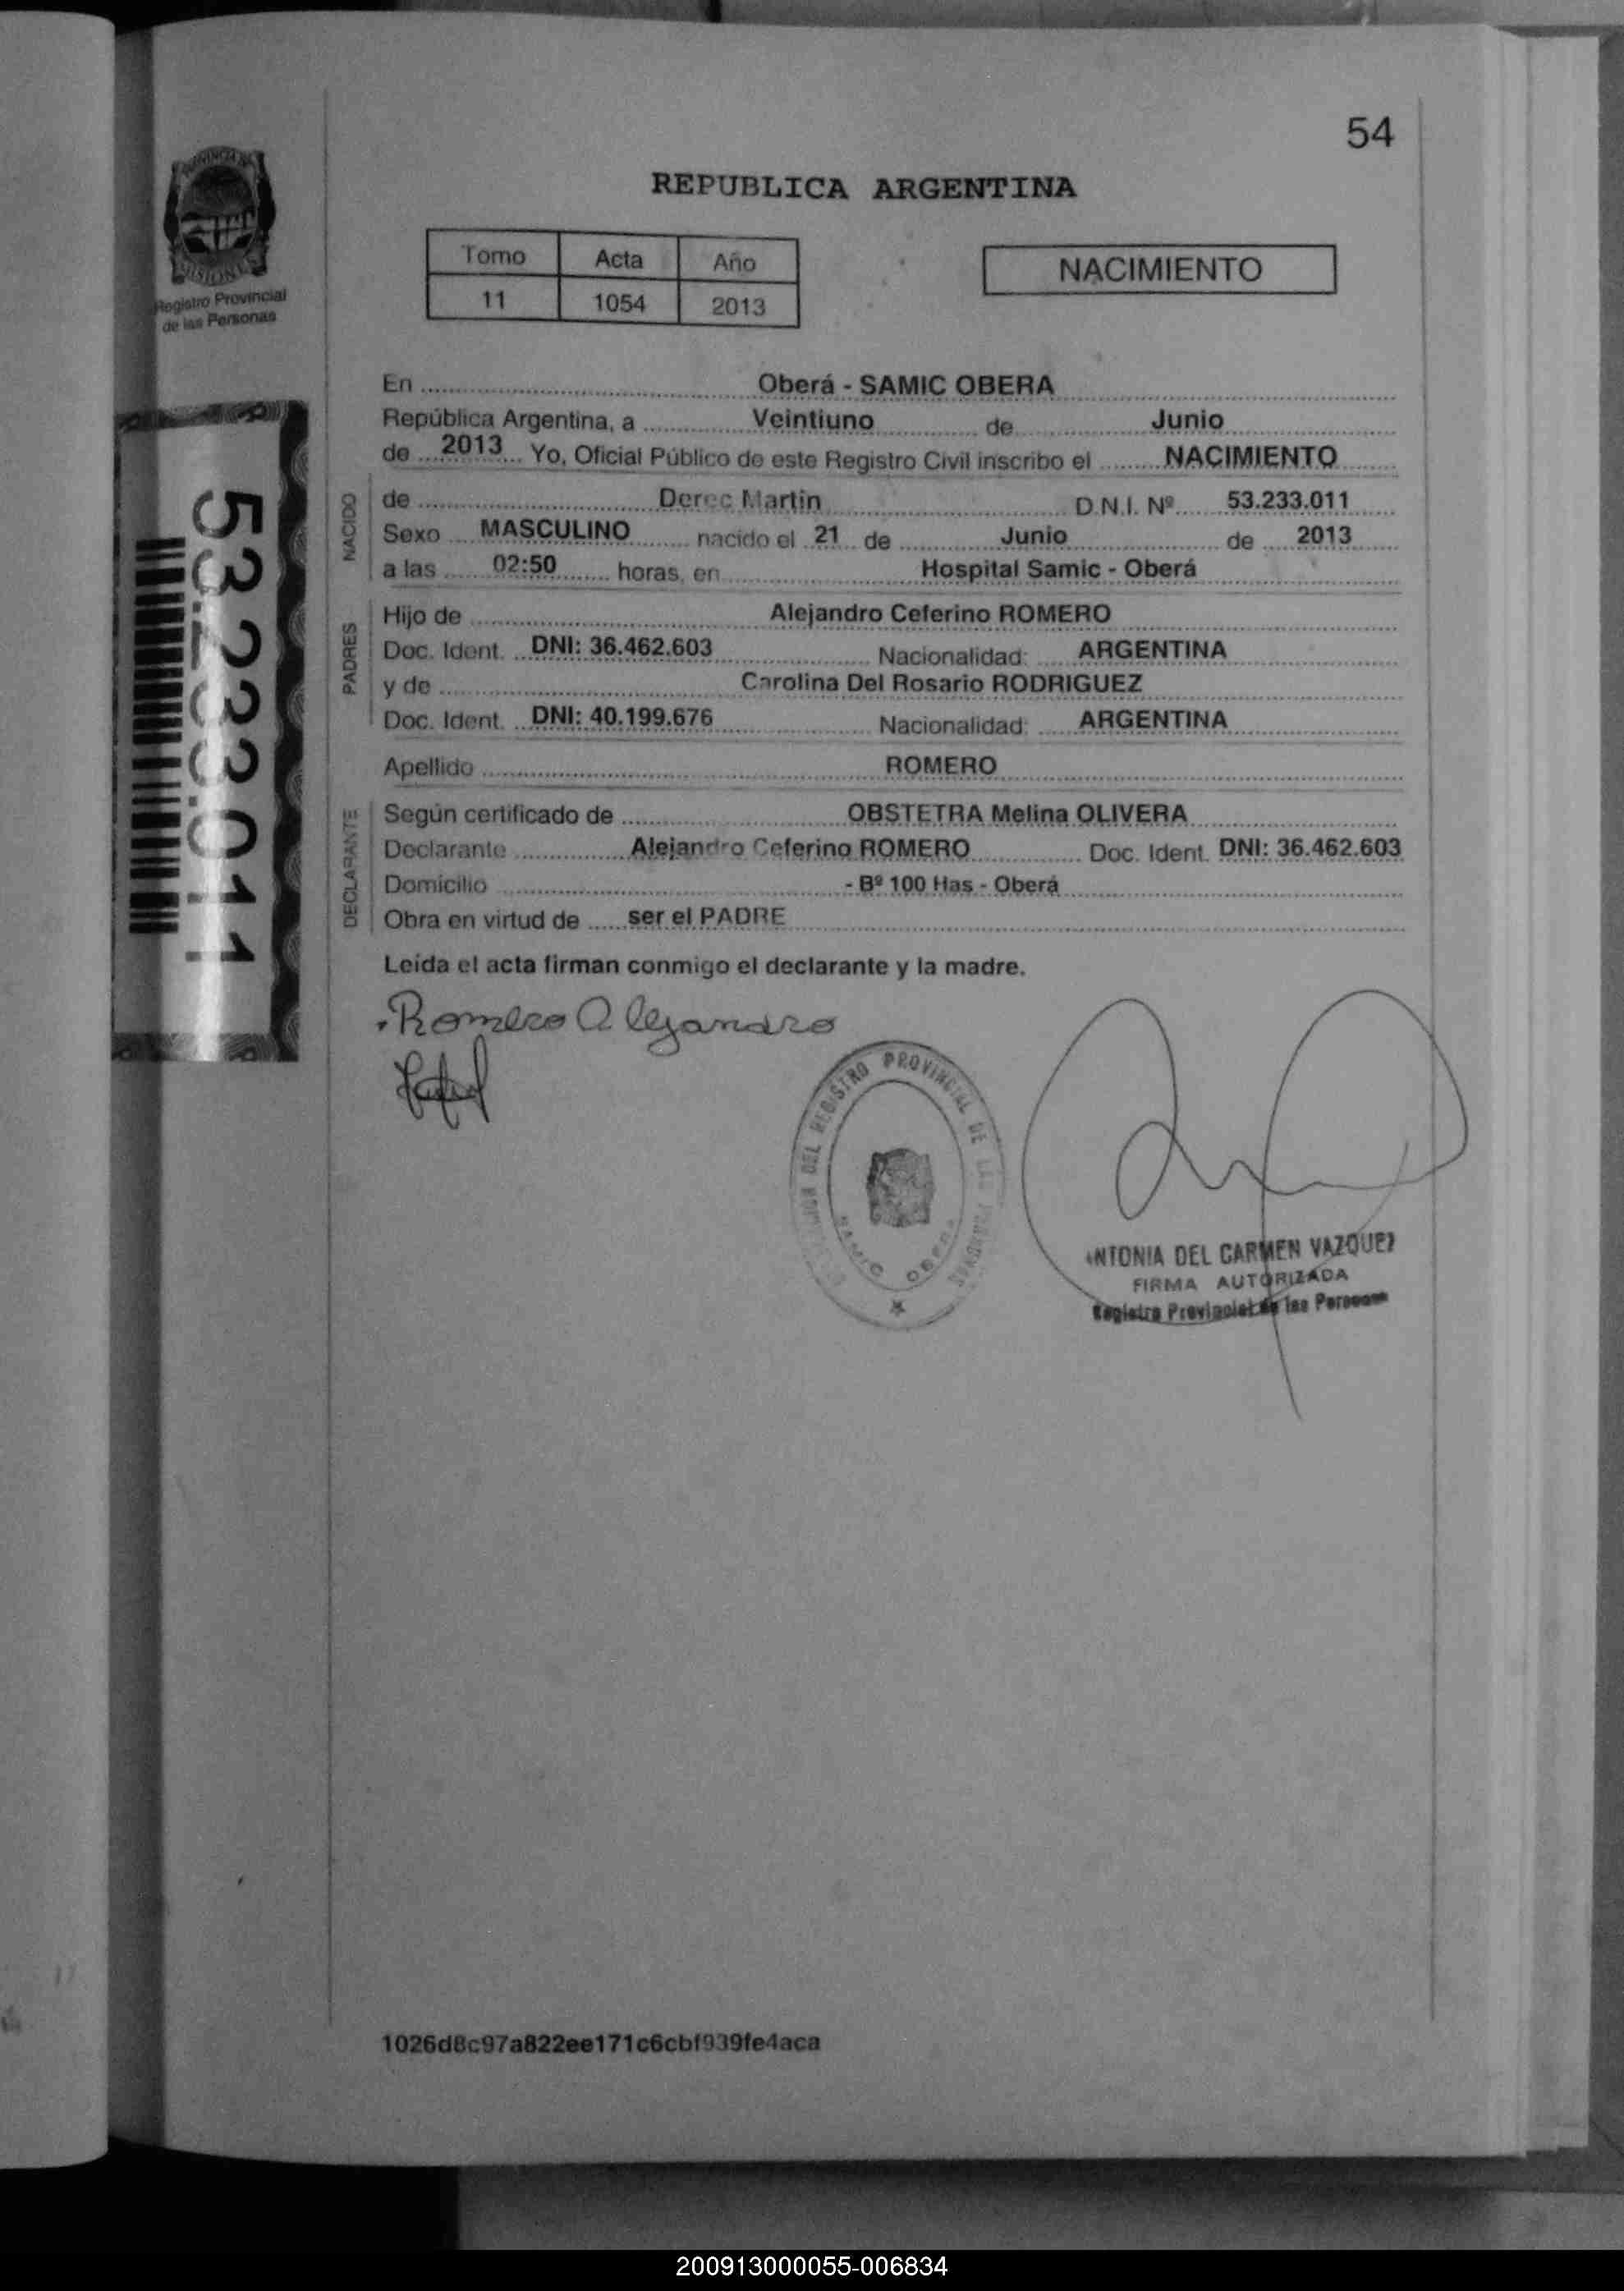 54
PROVINCIA DE
MISIONES
Registro Provincial
de las Personas
REPUBLICA ARGENTINA
Tomo Acta Año
11 1054 2013
NACIMIENTO
En Oberá - SAMIC OBERA
República Argentina, a Veintiuno de Junio
de 2013 Yo, Oficial Público de este Registro Civil inscribo el NACIMIENTO
NACIDO
de Derec Martin D.N.I. Nº 53.233.011
Sexo MASCULINO nacido el 21 de Junio de 2013
a las 02:50 horas, en Hospital Samic - Oberá
PADRES
Hijo de Alejandro Ceferino ROMERO
Doc. Ident. DNI: 36.462.603 Nacionalidad: ARGENTINA
y de Carolina Del Rosario RODRIGUEZ
Doc. Ident. DNI: 40.199.676 Nacionalidad: ARGENTINA
Apellido ROMERO
DECLARANTE
Según certificado de OBSTETRA Melina OLIVERA
Declarante Alejandro Ceferino ROMERO Doc. Ident. DNI: 36.462.603
Domicilio - Bº 100 Has - Oberá
Obra en virtud de ser el PADRE
Leída el acta firman conmigo el declarante y la madre.
53.233.011
Romero Alejandro
DEL REGISTRO PROVINCIAL DE LAS PERSONAS
SAMIC OBERA
NTONIA DEL CARMEN VAZQUEZ
FIRMA AUTORIZADA
Registro Provincial de las Personas
1026d8c97a822ee171c6cbf939fe4aca
200913000055-006834